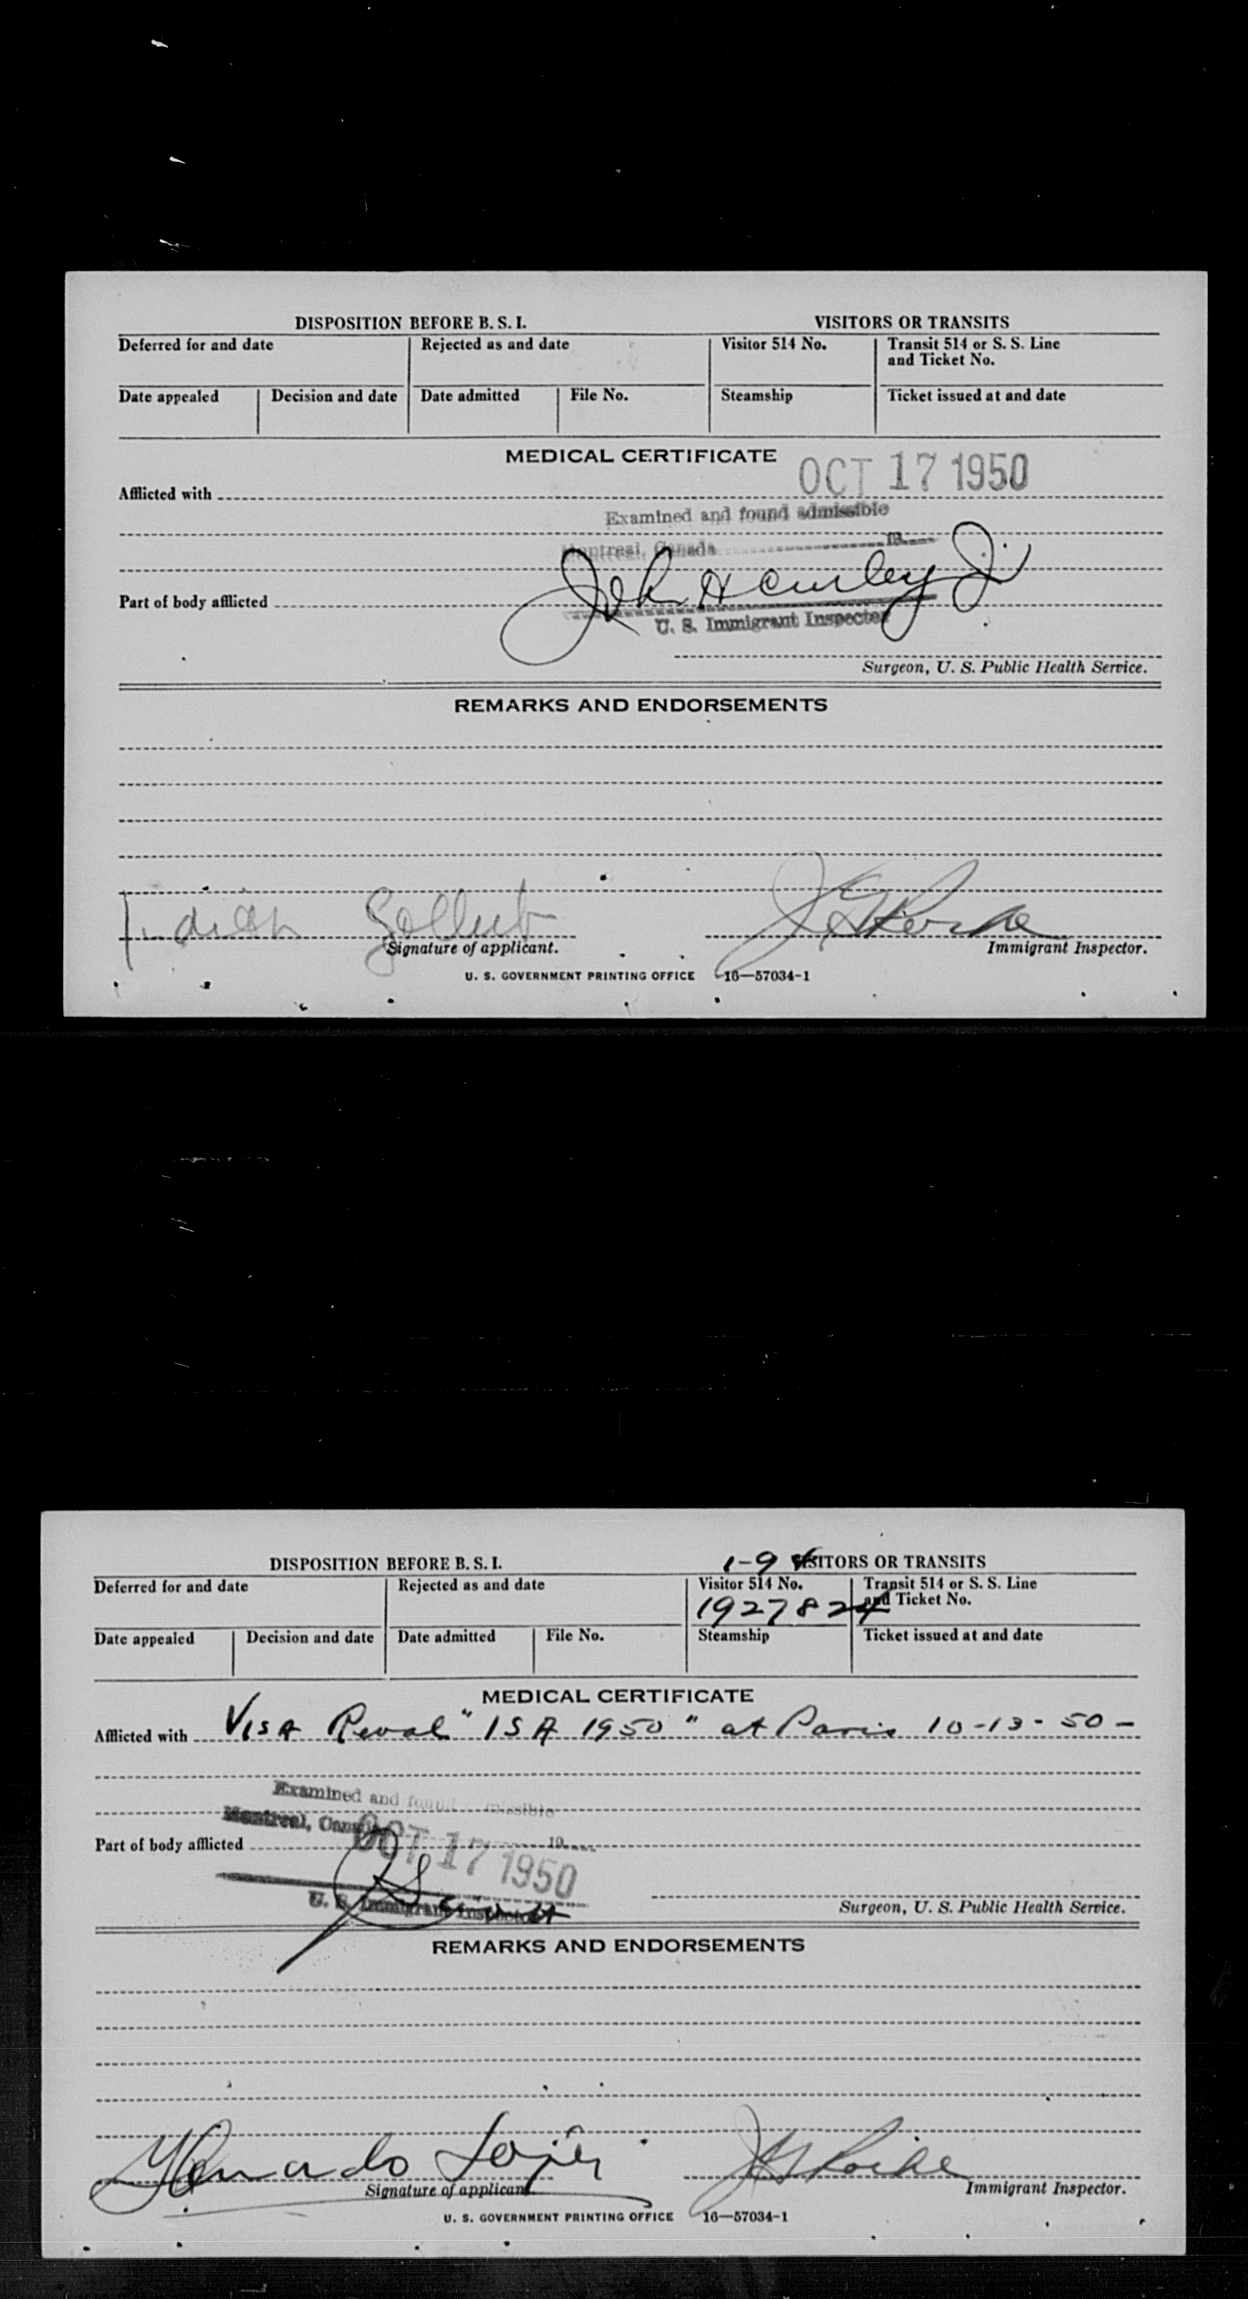 DISPOSITION BEFORE B. S. I.
VISITORS OR TRANSITS
Deferred for and date
Rejected as and date
Visitor 514 No.
Transit 514 or S. S. Line
and Ticket No.
Date appealed
Decision and date
Date admitted
File No.
Steamship
Ticket issued at and date
MEDICAL CERTIFICATE
OCT 17 1950
Afflicted with
Examined and found admissible
Montreal, Canada 19
John H Curley Jr
Part of body afflicted
U. S. Immigrant Inspector
Surgeon, U. S. Public Health Service.
REMARKS AND ENDORSEMENTS
Signature of applicant.
Immigrant Inspector.
U. S. GOVERNMENT PRINTING OFFICE 16—57034-1
DISPOSITION BEFORE B. S. I.
1-94 VISITORS OR TRANSITS
Deferred for and date
Rejected as and date
Visitor 514 No.
Transit 514 or S. S. Line
and Ticket No.
1927824
Date appealed
Decision and date
Date admitted
File No.
Steamship
Ticket issued at and date
MEDICAL CERTIFICATE
Afflicted with Visa Reval "ISA 1950" at Paris 10-13-50-
Examined and found admissible
Montreal, Canada 19
OCT 17 1950
Part of body afflicted
U. S. Immigrant Inspector
Surgeon, U. S. Public Health Service.
REMARKS AND ENDORSEMENTS
Signature of applicant.
Immigrant Inspector.
U. S. GOVERNMENT PRINTING OFFICE 16—57034-1